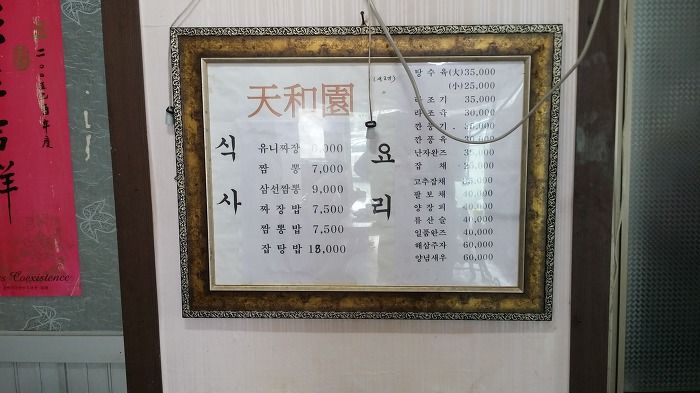 天和園
식사
유니짜장 6,000
짬뽕 7,000
삼선짬뽕 9,000
짜장밥 7,500
짬뽕밥 7,500
잡탕밥 13,000
요리
탕수육(大)35,000
(小)25,000
라조기 35,000
라조육 30,000
깐풍기
깐풍육
난자완즈
잡채
고추잡채
팔보채 40,000
양장피 40,000
류산슬 40,000
일품완즈 40,000
해삼주자 60,000
양념새우 60,000
吉祥
年度
Coexistence